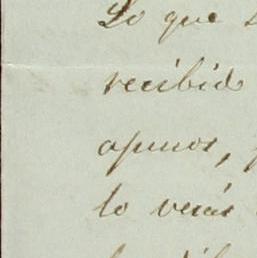 Lo que
recibido
apuros,
lo verás